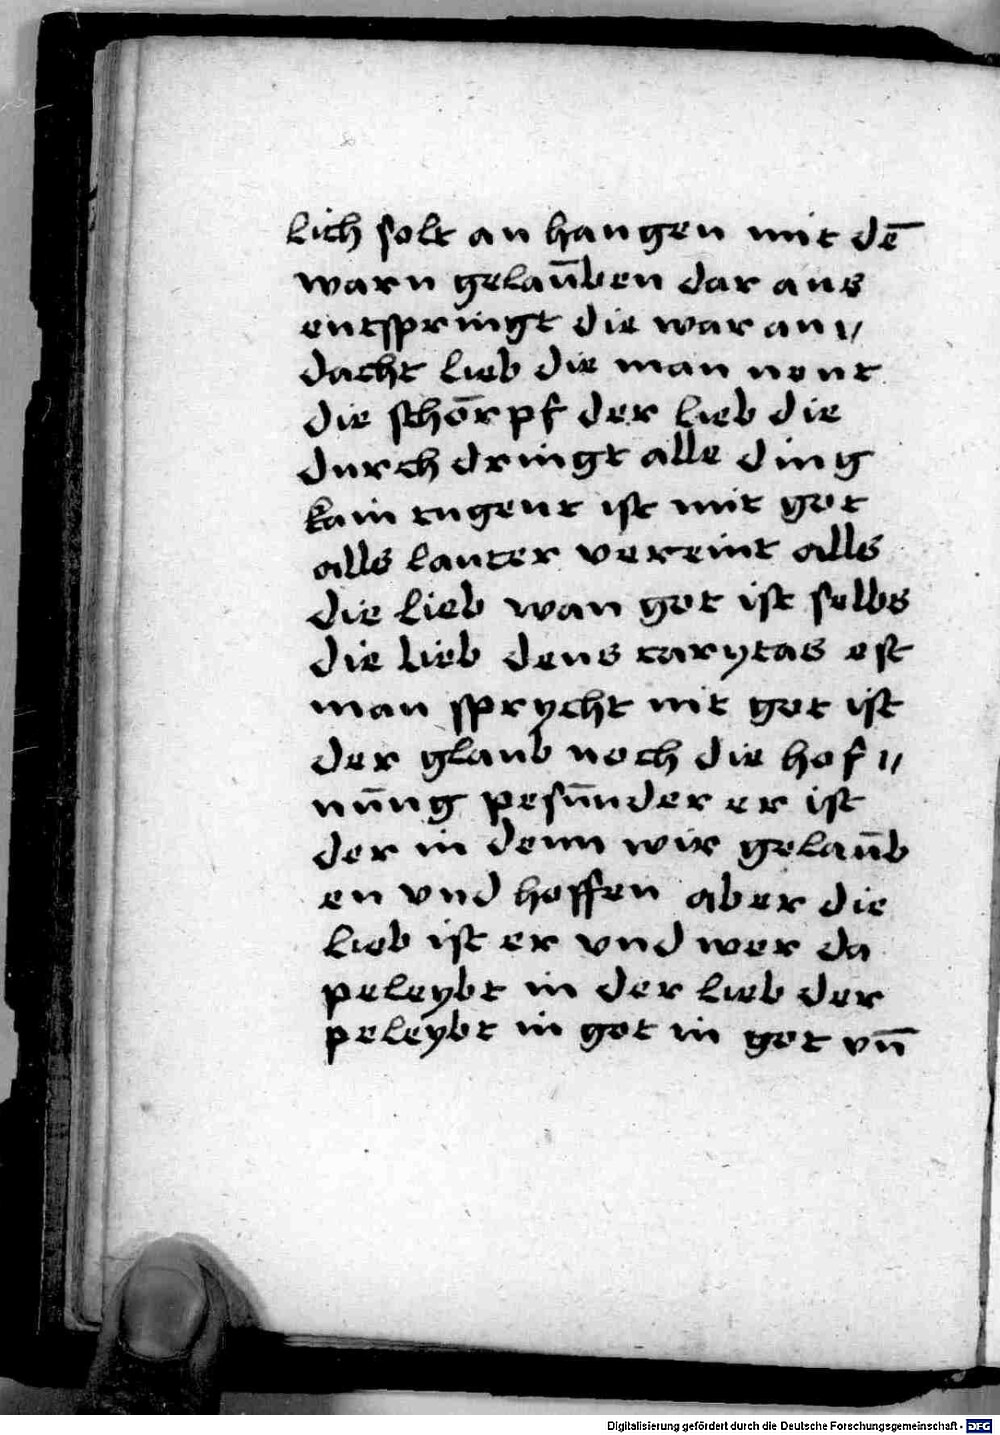 lich solt an hangen mit dē
warn gelaūben dar aus
entspringt die war an〃
dacht lieb die man nent
die schōrpf der lieb die
durch dringt alle ding
kain tugent ist mit got
alls lauter vereint alls
die lieb wan got ist selbs
die lieb deus carytas est
man sprycht nit got ist
der glaub noch die hof〃
nūng pesūnder er ist
der in denn wir gelaūb
en vnd hoffen aber die
lieb ist er vnd wer da
peleybt in der lieb der
peleybt in got in got vn̄
Digitalisierung gefördert durch die Deutsche Forschungsgemeinschaft - DFG